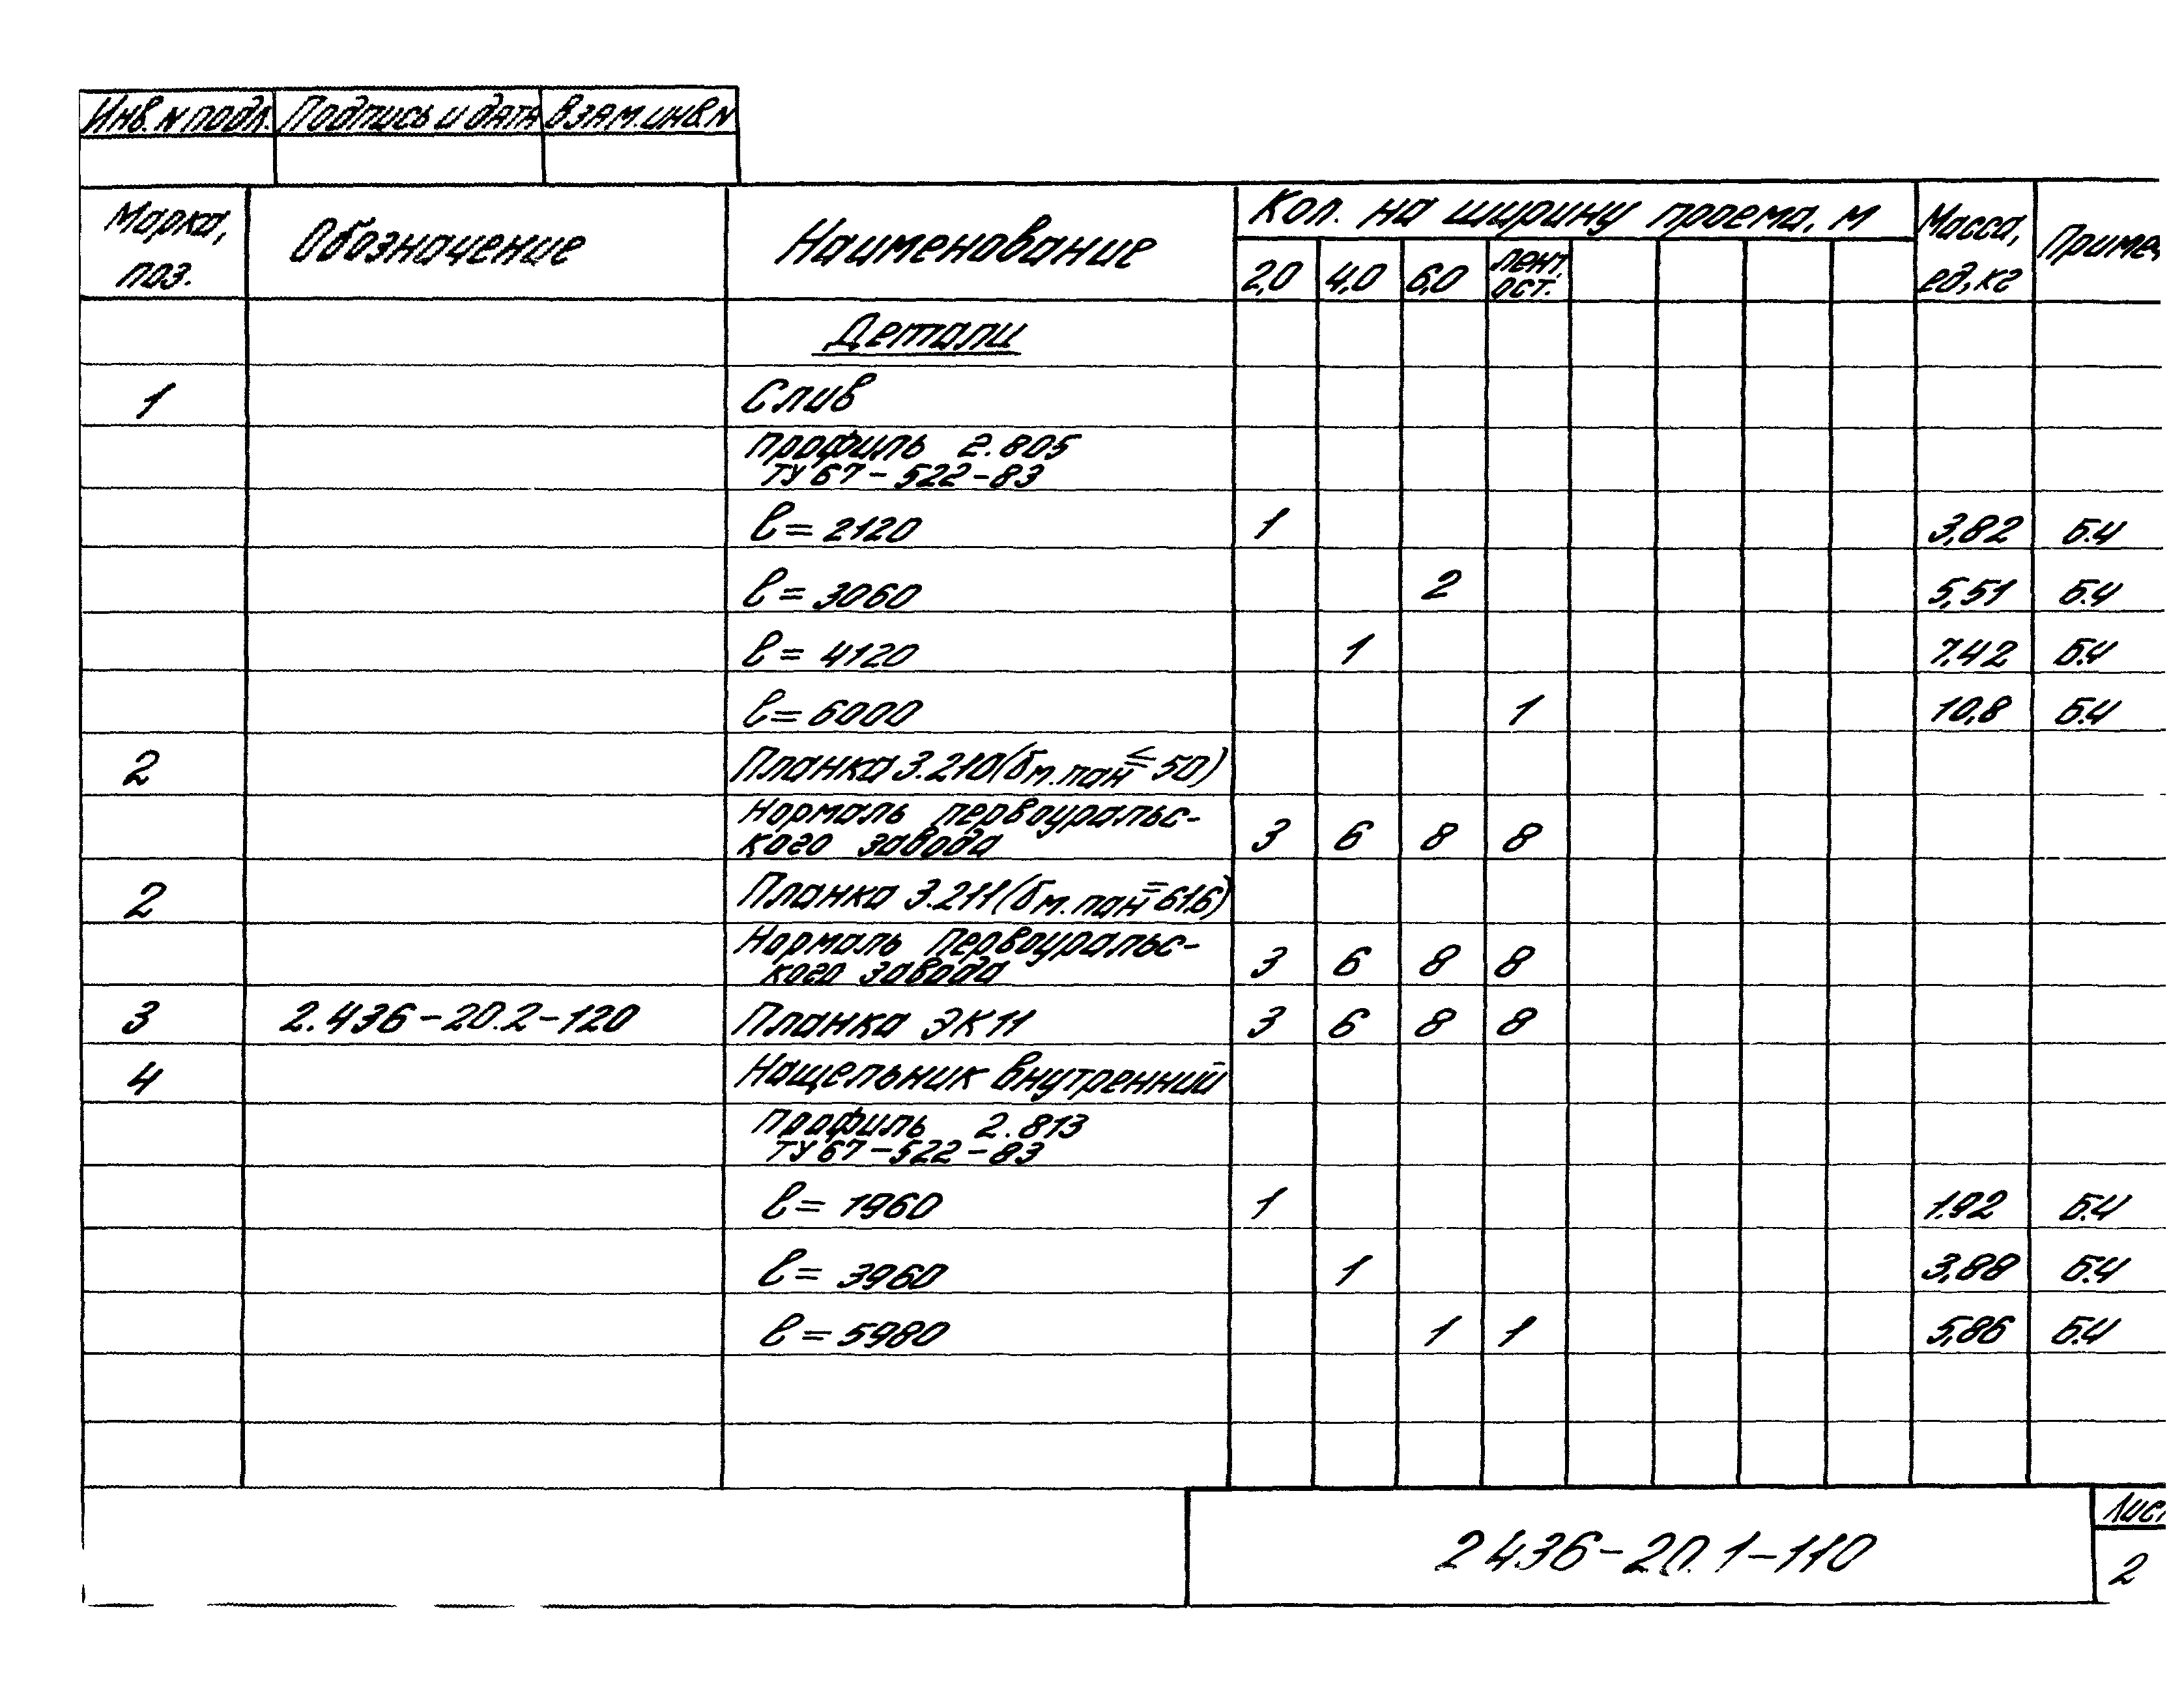 Инв. N подл. Подпись и дата Взам. инв. N
Марка, поз. Обозначение Наименование Кол. на ширину проема, м Масса, ед, кг Приме
2,0 4,0 6,0 лент. ост.
Детали
1 Слив
профиль 2.805
ТУ 67-522-83
ℓ= 2120 1 3,82 Б.Ч
ℓ= 3060 2 5,51 Б.Ч
ℓ= 4120 1 7,42 Б.Ч
ℓ= 6000 1 10,8 Б.Ч
2 Планка 3.210 (бм.пан ≤ 50)
Нормаль первоуральс-
кого завода 3 6 8 8
2 Планка 3.211 (бм.пан = 61,6)
Нормаль первоуральс-
кого завода 3 6 8 8
3 2.436-20.2-120 Планка ЭК11 3 6 8 8
4 Нащельник внутренний
профиль 2.813
ТУ 67-522-83
ℓ= 1960 1 1.92 Б.Ч
ℓ= 3960 1 3,88 Б.Ч
ℓ= 5980 1 1 5,86 Б.Ч
2 436-20.1-110
Лист
2